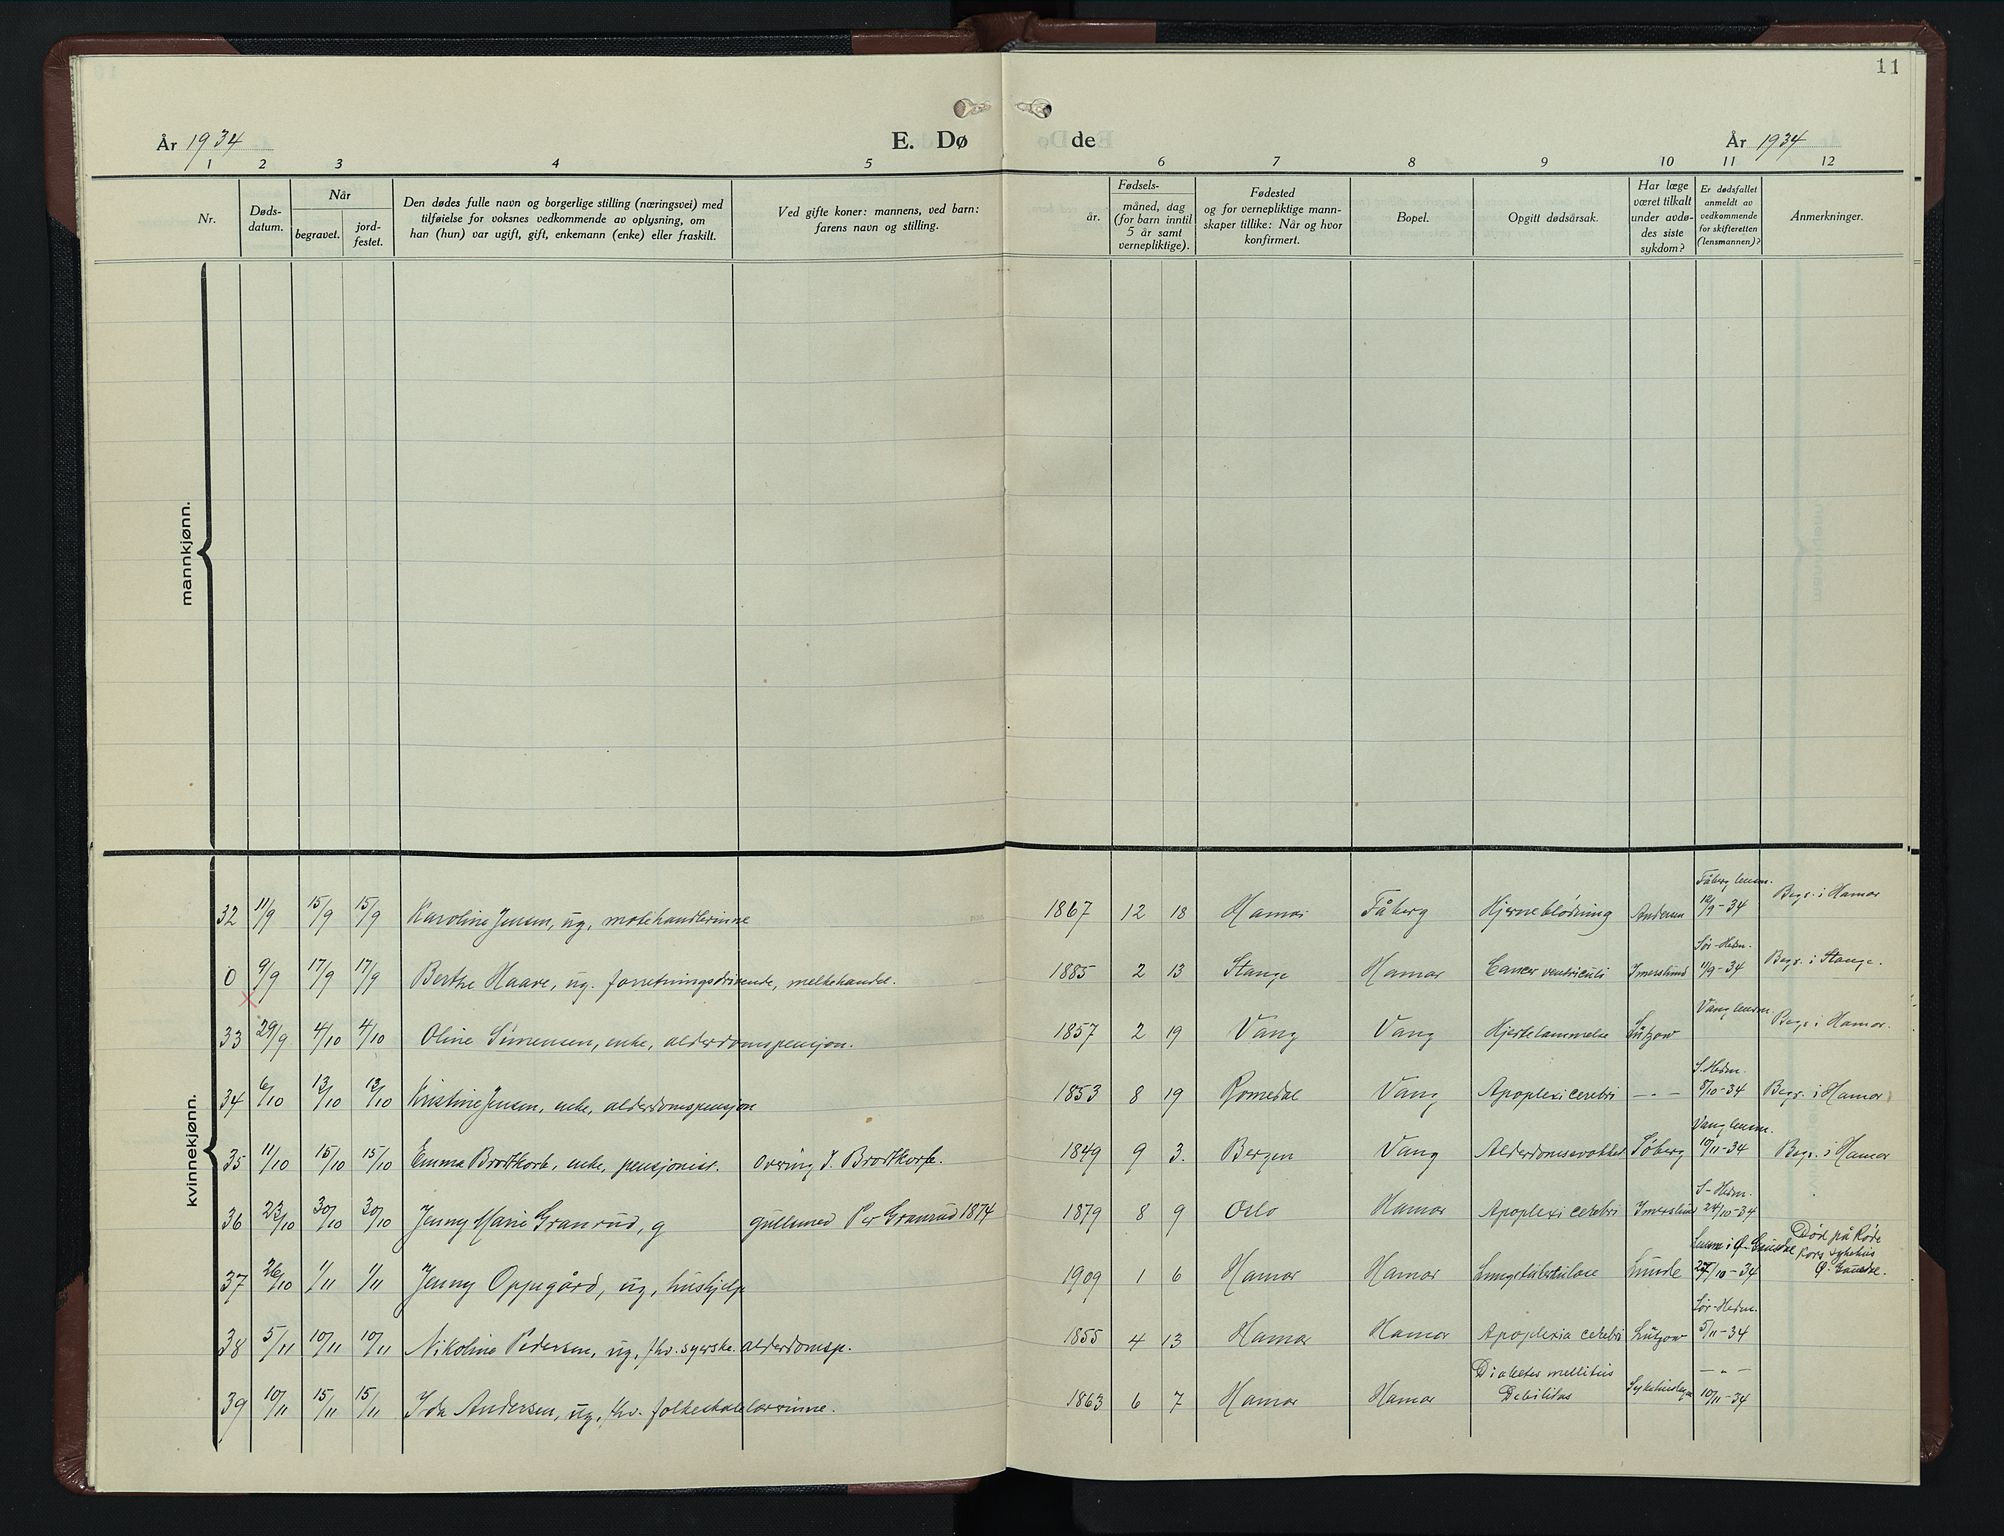 11
År 1934 E. Dø de År 1934
1 2 3 4 5 6 7 8 9 10 11 12
Nr.
Døds-
datum.
Når
begravet.
jord-
festet.
Den dødes fulle navn og borgerlige stilling (næringsvei) med
tilføielse for voksnes vedkommende av oplysning, om
han (hun) var ugift, gift, enkemann (enke) eller fraskilt.
Ved gifte koner: mannens, ved barn:
farens navn og stilling.
år.
Fødsels-
måned, dag
(for barn inntil
5 år samt
vernepliktige).
Fødested
og for vernepliktige mann-
skaper tillike: Når og hvor
konfirmert.
Bopel.
Opgitt dødsårsak.
Har læge
været tilkalt
under avdø-
des siste
sykdom?
Er dødsfallet
anmeldt av
vedkommende
for skifteretten
(lensmannen)?
Anmerkninger.
mannkjønn.
kvinnekjønn.
32 11/9 15/9 15/9 Karoline Jensen, ug, motehandlerinne 1867 12 18 Hamar Fåberg Hjerneblødning Andersen Fåberg lensm. 12/9-34 Begr. i Hamar
0 9/9 17/9 17/9 Berthe Haave, ug. forretningsdrivende, melkehandel. 1885 2 13 Stange Hamar Cancer ventriculi Imerslund Sør-Hedm. 11/9-34 Begr. i Stange.
33 29/9 4/10 4/10 Oline Simensen, enke, alderdomspensjon. 1857 2 19 Vang Vang Hjertelammelse Lützow Vang lensm. Begr. i Hamar.
34 6/10 13/10 13/10 Kristine Jensen, enke, alderdomspensjon 1853 8 19 Romedal Vang Apoplexi cerebri — " — S. Hedm. 8/10-34 Begr. i Hamar
35 11/10 15/10 15/10 Emma Brodtkorb, enke, pensjonist. J. Brodtkorb. 1849 9 3. Bergen Vang Søberg Vang lensm. 10/11-34 Begr. i Hamar
36 23/10 30/10 30/10 Jenny Marie Granrud, g gullsmed Per Granrud 1874 1879 8 9 Oslo Hamar Apoplexi cerebri Imerslund S-Hedm. 24/10-34
37 26/10 1/11 1/11 Jenny Oppegård, ug, hushjelp 1909 1 6 Hamar Hamar Lungetuberkulose Lunde Lensm i Ø. Gausdal 27/10-34 Død på Røde Kors sykehus Ø. Gausdal.
38 5/11 10/11 10/11 Nikoline Pedersen, ug, fhv. syerske. alderdomsp. 1855 4 13 Hamar Hamar Apoplexia cerebri Lützow Sør-Hedm. 5/11-34
39 10/11 15/11 15/11 Ida Andersen, ug, fhv. folkeskolelærerinne. 1863 6 7 Hamar Hamar Diabetes mellitus Debilitas Sykehuslege — " — 10/11-34